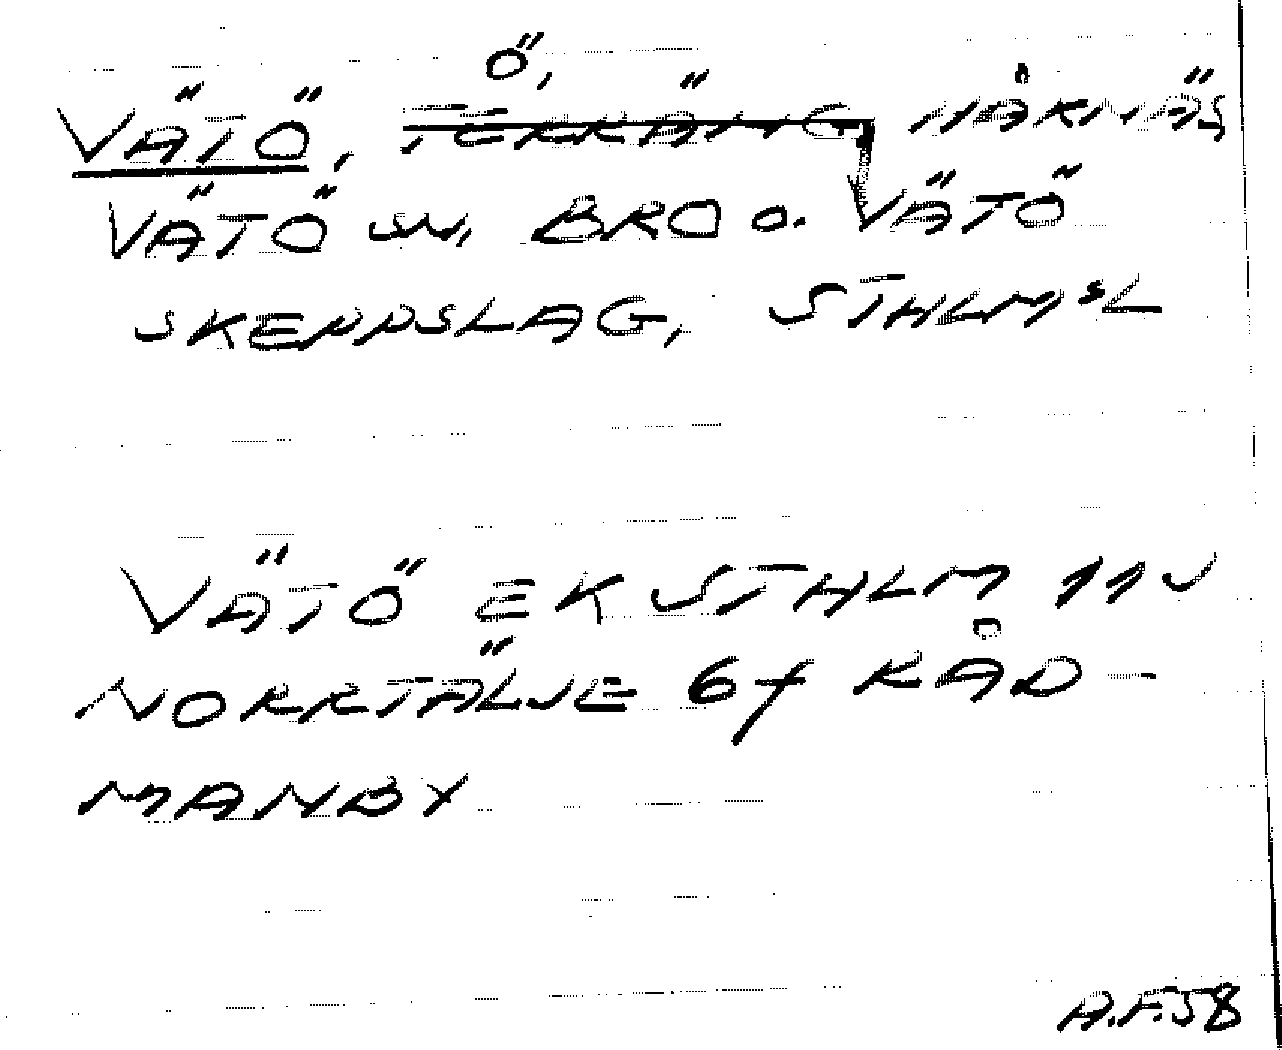 Ö,
VÄTÖ, TERRÄNG, HÅKNÄS
VÄTÖ sn, BRO o. VÄTÖ
SKEPPSLAG, STHLMSL
VÄTÖ EK STHLM 11V
NORRTÄLJE 6f RÅD-
MANBY
A.F.58